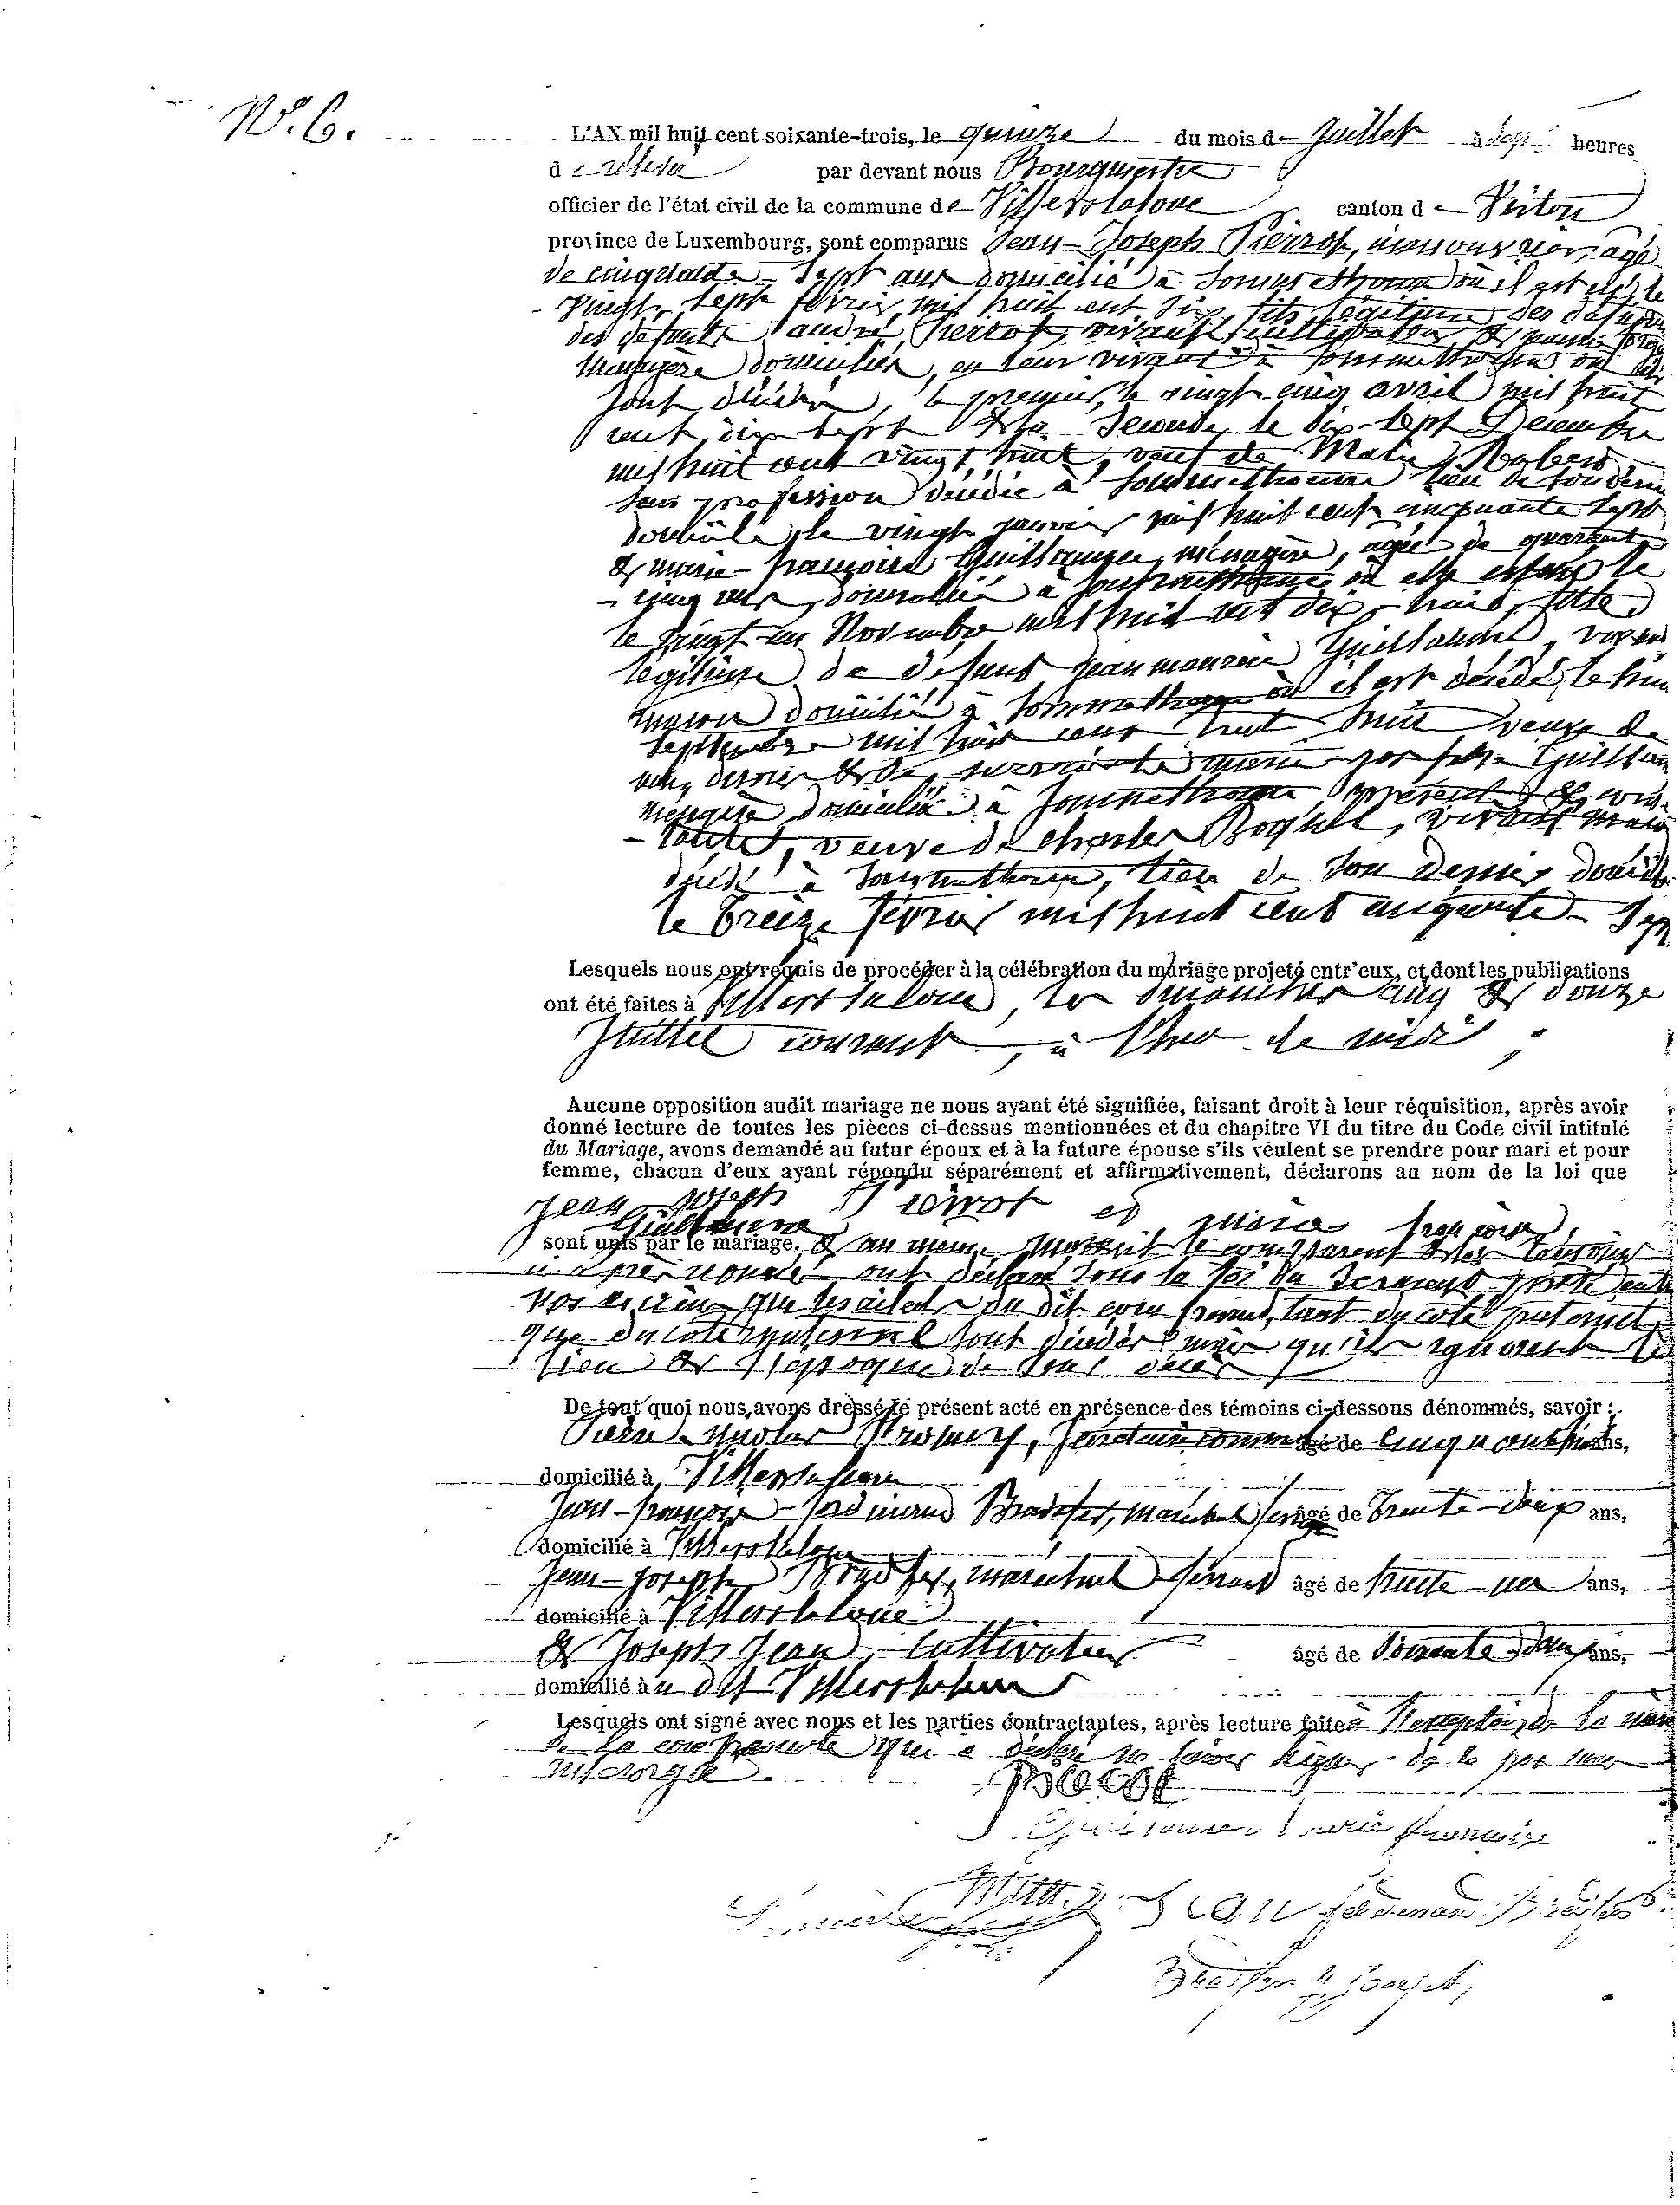 N°. 6.
L'AN mil huit cent soixante-trois, le quinze du mois de Juillet à sept heures
d par devant nous Bourgmestre
officier de l'état civil de la commune de Villerslaloue canton d Virton
province de Luxembourg, sont comparus Jean-Joseph Pierrot, manouvrier, agé
de cinquante-sept ans domicilié à Sommethonne où il est né, le
vingt-sept février mil huit cent six, fils légitime des défunts
des défunts andré Pierrot, vivant cultivateur &
ménagère domiciliés, en leur vivant à Sommethonne où ils
sont décédés, le premier, le vingt cinq avril mil huit
cent dix sept & la seconde le dix-sept Décembre
mil huit cent vingt huit, veuf de Marie
sans profession décédée à Sommethonne lieu de son dernier
domicile le vingt janvier mil huit cent cinquante sept
& marie-françoise Guillaume, ménagère, agée de quarante
-cinq ans, domiciliée à Sommethonne où elle est née le
le vingt un Novembre mil huit cent dix-huit, fille
légitime de défunt Jean Guillaume, vivant
maçon domicilié à Sommethonne où il est décédé, le huit
Septembre mil huit cent trente huit veuve de
dernier & de survivante marie
ménagère domiciliée à Sommethonne présente & con-
-sentante, veuve de Charles, vivant
décédé à Sommethonne, lieu de son dernier domicile
le treize février mil huit cent cinquante-sept
Lesquels nous ont requis de procéder à la célébration du mariage projeté entr'eux, et dont les publications
ont été faites à Villerslaloue, les dimanches cinq & douze
Juillet courant, à l'heure de midi;
Aucune opposition audit mariage ne nous ayant été signifiée, faisant droit à leur réquisition, après avoir
donné lecture de toutes les pièces ci-dessus mentionnées et du chapitre VI du titre du Code civil intitulé
du Mariage, avons demandé au futur époux et à la future épouse s'ils veulent se prendre pour mari et pour
femme, chacun d'eux ayant répondu séparément et affirmativement, déclarons au nom de la loi que
Jean Joseph Pierrot et marie françoise
Guillaume
sont unis par le mariage. & au même moment le comparant & les témoins
ci après nommés ont déclaré sous la foi du serment prêté entre
nos mains que les aïeuls du dit comparant, tant du coté paternel
que du coté maternel sont décédés mais qu'ils ignorent le
lieu & l'époque de leur décès
De tout quoi nous avons dressé le présent acte en présence des témoins ci-dessous dénommés, savoir:
Pierre Nicolas, Secrétaire communal âgé de cinquante huit ans,
domicilié à Villerslaloue
Jean-françois-ferdinand Bradfer, maréchal ferrant âgé de trente-deux ans,
domicilié à Villerslaloue
Jean-Joseph Bradfer, maréchal ferrant âgé de trente-un ans,
domicilié à Villerslaloue
& Joseph Jean, cultivateur âgé de soixante deux ans,
domicilié au dit Villerslaloue
Lesquels ont signé avec nous et les parties contractantes, après lecture faite à l'exception de la mère
de la comparante qui a déclaré ne savoir signer de ce par nous
interrogée.
Pierrot
Guillaume Marie françoise
Jean ferdinand Bradfer
Bradfer J Joseph